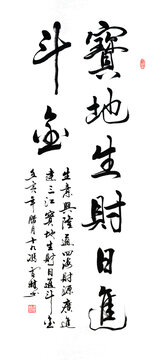 寶地生財日進
斗金
生意興隆通四海財源廣進
達三江寶地生財日進斗金